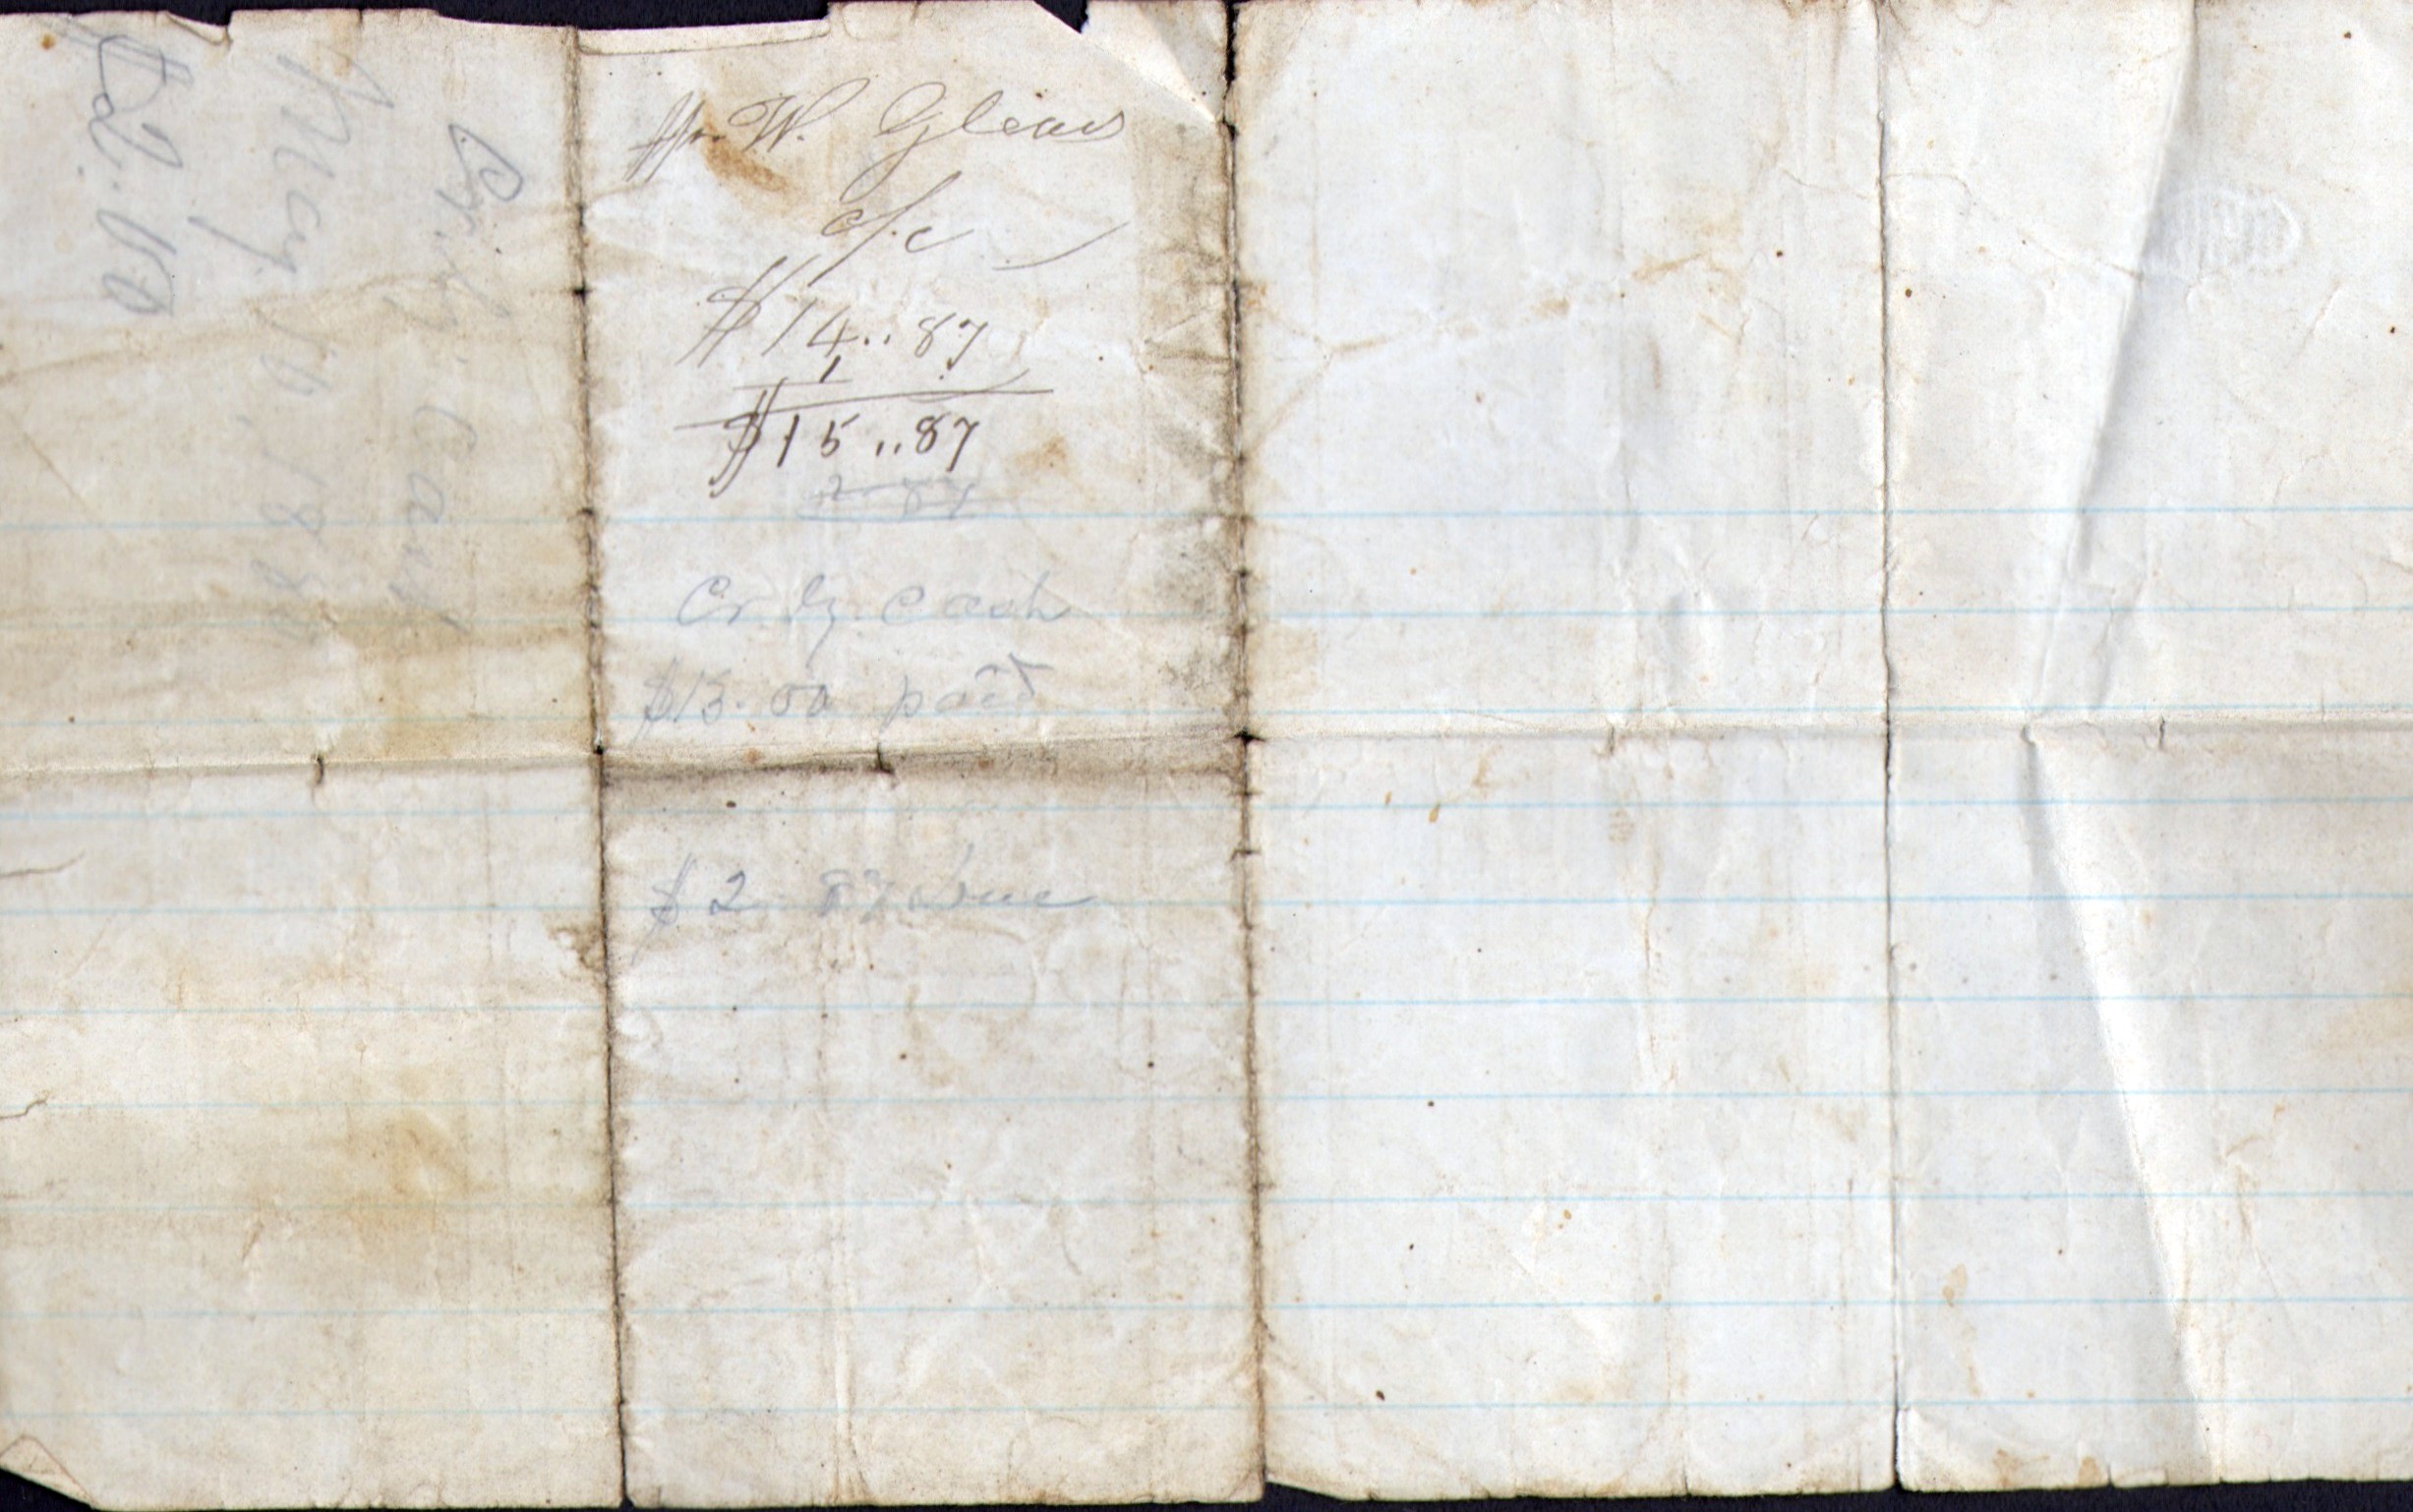 Cr. by cash
May 10, 188
$2.00
Mr. W. Gleaves
a/c
$14..87
1
$15..87
2 87
Cr. by. Cash
$13.00 paid
$2 87 Due